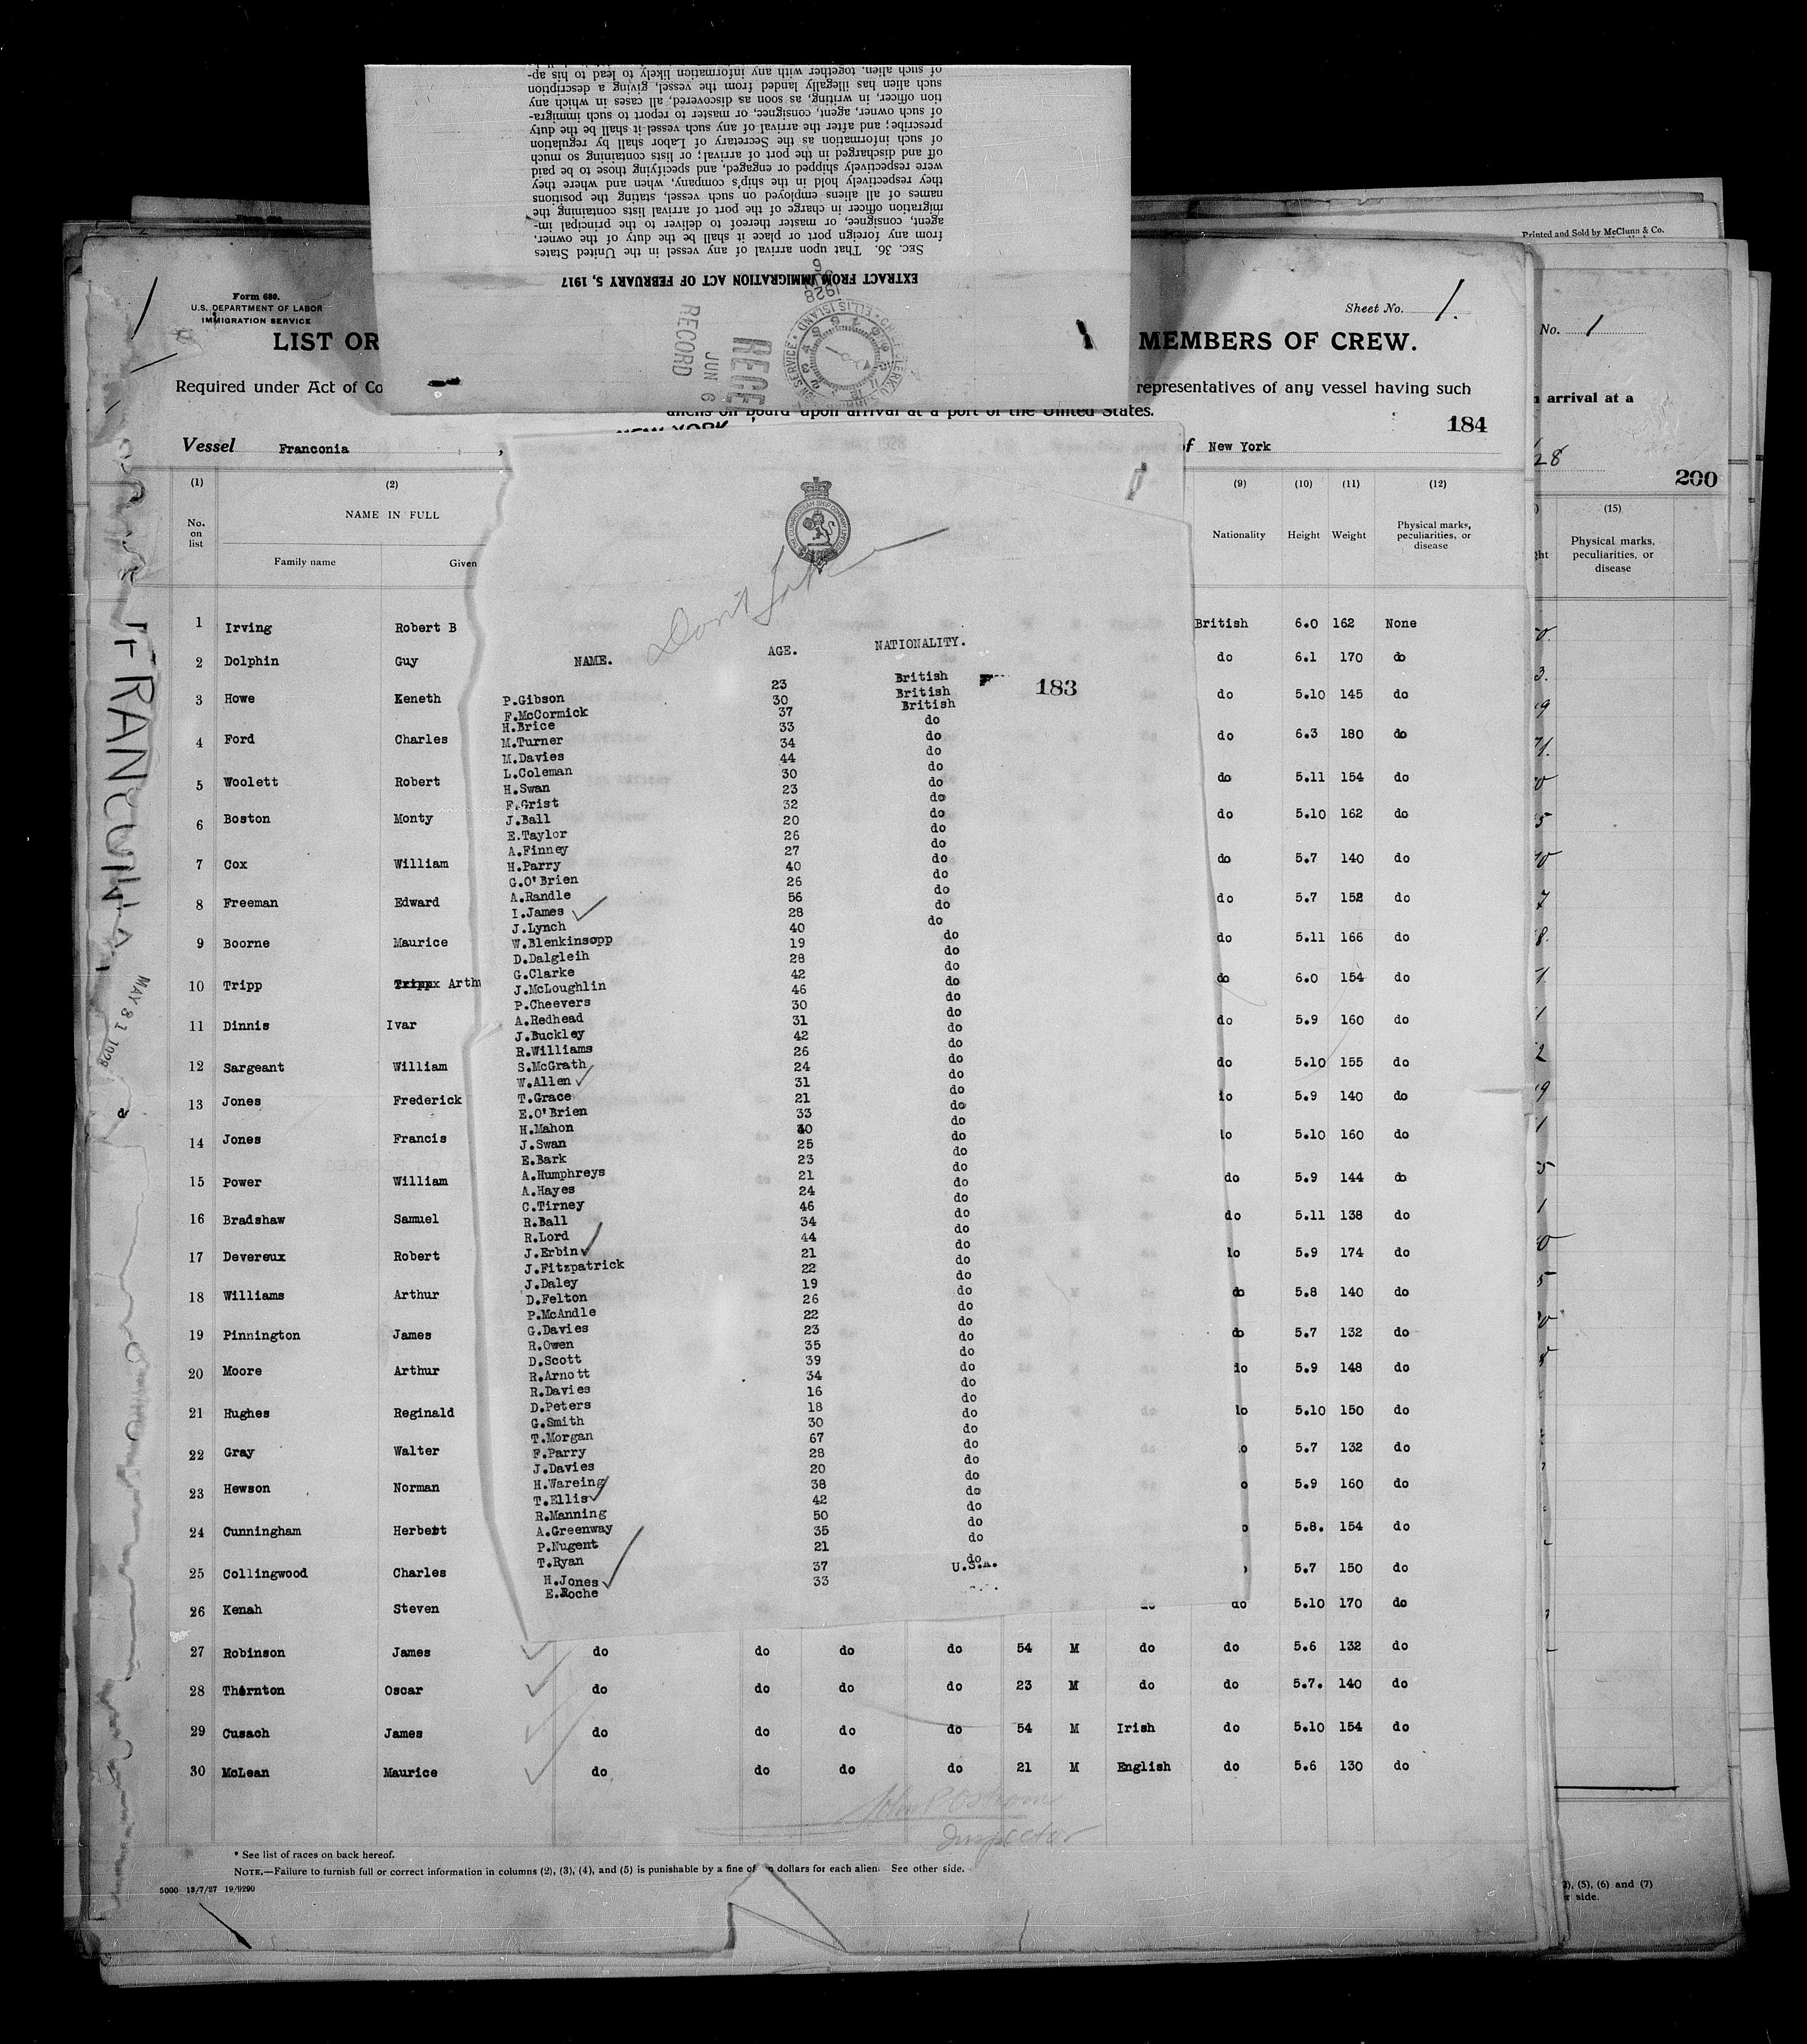 of such alien, together with any information likely to lead to his ap-
such alien has illegally landed from the vessel, giving a description
tion officer, in writing, as soon as discovered, all cases in which any
of such owner, agent, consignee, or master to report to such immigra-
prescribe; and after the arrival of any such vessel it shall be the duty
of such information as the Secretary of Labor shall by regulation
off and discharged in the port of arrival; or lists containing so much
were respectively shipped or engaged, and specifying those to be paid
they respectively hold in the ship's company, when and where they
names of all aliens employed on such vessel, stating the positions
migration officer in charge of the port of arrival lists containing the
agent, consignee, or master thereof to deliver to the principal im-
from any foreign port or place it shall be the duty of the owner,
SEC. 36. That upon arrival of any vessel in the United States
EXTRACT FROM IMMIGRATION ACT OF FEBRUARY 5, 1917
1928
RECORD
JUN 6
Printed and Sold by McClunn & Co.
Form 680.
U.S. DEPARTMENT OF LABOR
IMMIGRATION SERVICE
Sheet No. 1.
No. 1
LIST OR MEMBERS OF CREW.
Required under Act of Co representatives of any vessel having such
arrival at a
aliens on board upon arrival at a port of the United States.
184
NEW YORK
Vessel Franconia, of New York
28
200
FRANCONIA
MAY 31 1928
(1) (2) (9) (10) (11) (12) (15)
No. on list NAME IN FULL Nationality Height Weight Physical marks, peculiarities, or disease
Family name Given
Physical marks, peculiarities, or disease
1 Irving Robert B British 6.0 162 None
2 Dolphin Guy do 6.1 170 do
3 Howe Keneth do 5.10 145 do
4 Ford Charles do 6.3 180 do
5 Woolett Robert do 5.11 154 do
6 Boston Monty do 5.10 162 do
7 Cox William do 5.7 140 do
8 Freeman Edward do 5.7 152 do
9 Boorne Maurice do 5.11 166 do
10 Tripp Trippx Arth do 6.0 154 do
11 Dinnis Ivar do 5.9 160 do
12 Sargeant William do 5.10 155 do
13 Jones Frederick do 5.9 140 do
14 Jones Francis do 5.10 160 do
15 Power William do 5.9 144 do
16 Bradshaw Samuel do 5.11 138 do
17 Devereux Robert do 5.9 174 do
18 Williams Arthur do 5.8 140 do
19 Pinnington James do 5.7 132 do
20 Moore Arthur do 5.9 148 do
21 Hughes Reginald do 5.10 150 do
22 Gray Walter o 5.7 132 do
23 Hewson Norman o 5.9 160 do
24 Cunningham Herbert o 5.8. 154 do
25 Collingwood Charles 5.7 150 do
26 Kenah Steven do do 5.10 170 do
27 Robinson James do do do do 54 M do do 5.6 132 do
28 Thornton Oscar do do do do 23 M do do 5.7. 140 do
29 Cusach James do do do do 54 M Irish do 5.10 154 do
30 McLean Maurice do do do do 21 M English do 5.6 130 do
THE CUNARD STEAM SHIP COMPANY LIMITED
Don't
NAME. AGE. NATIONALITY.
183
P.Gibson 23 British
F.McCormick 30 British
H.Brice 37 British
M.Turner 33 do
M.Davies 34 do
L.Coleman 44 do
H.Swan 30 do
F.Grist 23 do
J.Ball 32 do
E.Taylor 20 do
A.Finney 26 do
H.Parry 27 do
G.O'Brien 40 do
A.Randle 26 do
I.James 56 do
J.Lynch 28 do
W.Blenkinsopp 40 do
D.Dalgleih 19 do
G.Clarke 28 do
J.McLoughlin 42 do
P.Cheevers 46 do
A.Redhead 30 do
J.Buckley 31 do
R.Williams 42 do
S.McGrath 26 do
W.Allen 24 do
T.Grace 31 do
E.O'Brien 21 do
H.Mahon 33 do
J.Swan 40 do
E.Bark 25 do
A.Humphreys 23 do
A.Hayes 21 do
C.Tirney 24 do
R.Ball 46 do
R.Lord 34 do
J.Erbin 44 do
J.Fitzpatrick 21 do
J.Daley 22 do
D.Felton 19 do
P.McAndle 26 do
G.Davies 22 do
R.Owen 23 do
D.Scott 35 do
R.Arnott 39 do
R.Davies 34 do
D.Peters 16 do
G.Smith 18 do
T.Morgan 30 do
F.Parry 67 do
J.Davies 28 do
H.Wareing 20 do
T.Ellis 38 do
R.Manning 42 do
A.Greenway 50 do
P.Nugent 35 do
T.Ryan 21 do
H.Jones 37 do
E.Roche 33 U.S.A.
Inspector
* See list of races on back hereof.
NOTE.—Failure to furnish full or correct information in columns (2), (3), (4), and (5) is punishable by a fine of dollars for each alien. See other side.
5000 13/7/27 19/9290
(5), (6) and (7)
side.